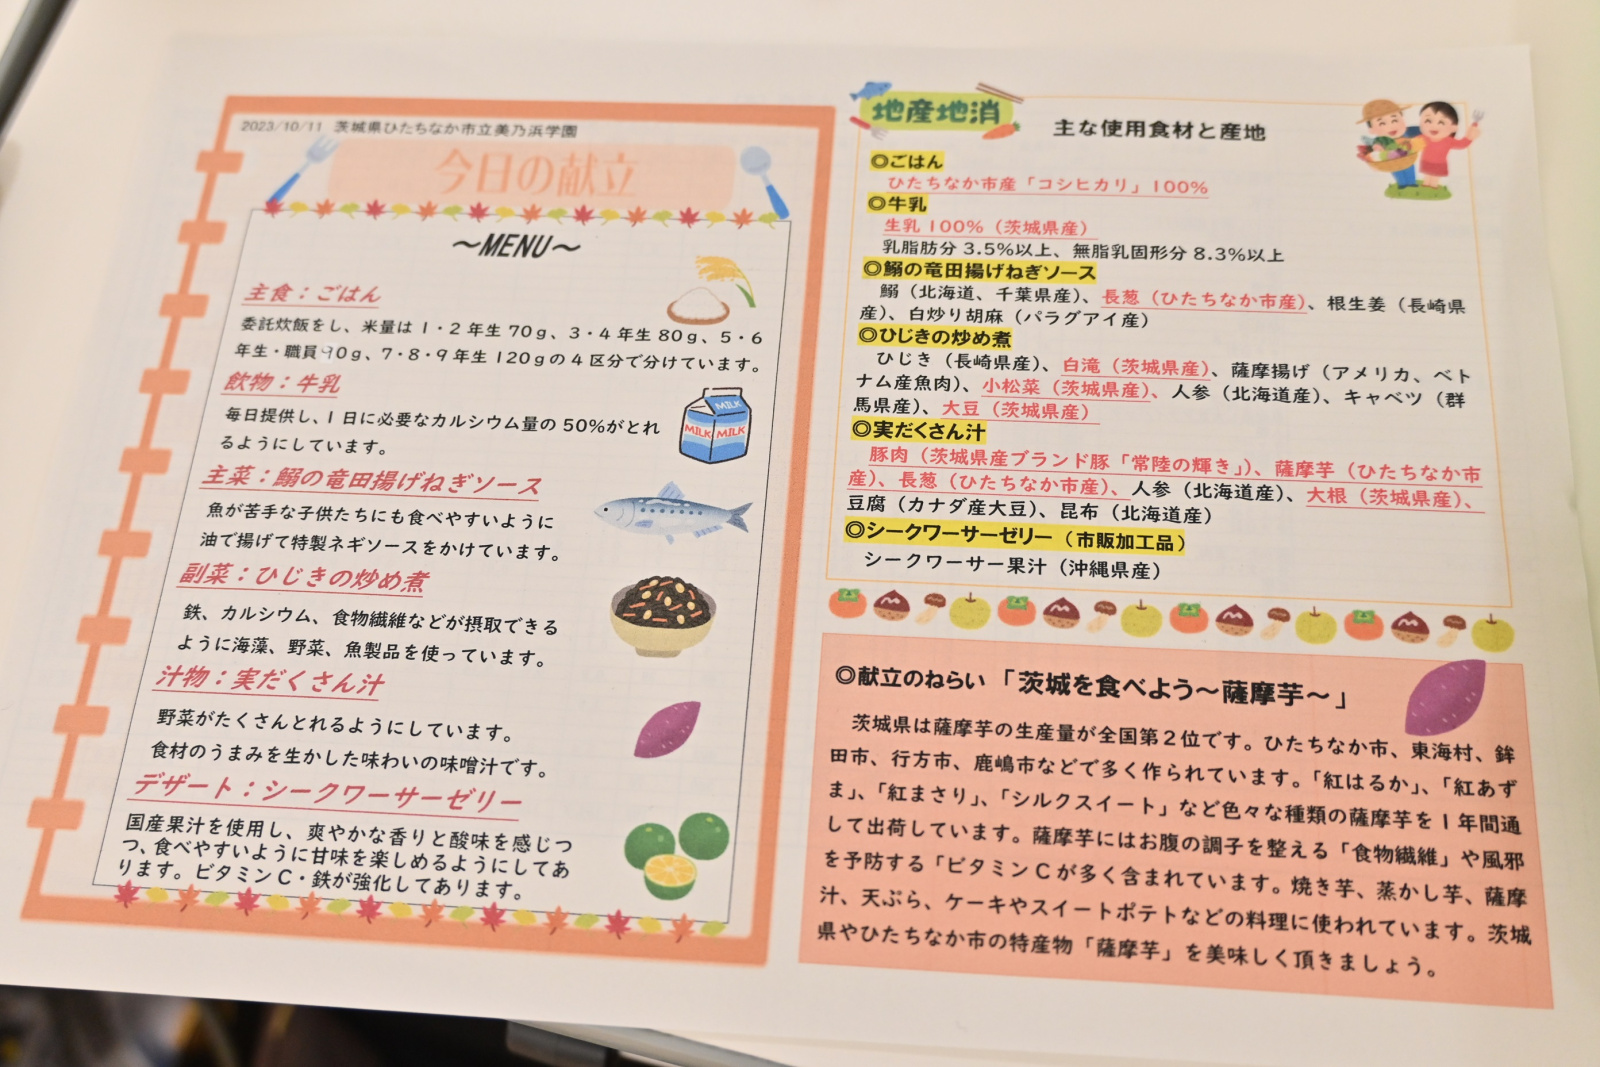 2023/10/11 茨城県ひたちなか市立美乃浜学園
今日の献立
～MENU～
主食：ごはん
委託炊飯をし、米量は１・２年生70ｇ、３・４年生80ｇ、５・６
年生・職員90ｇ、７・８・９年生120ｇの４区分で分けています。
飲物：牛乳
毎日提供し、１日に必要なカルシウム量の50%がとれ
るようにしています。
MILK
MILK MILK
主菜：鰯の竜田揚げねぎソース
魚が苦手な子供たちにも食べやすいように
油で揚げて特製ネギソースをかけています。
副菜：ひじきの炒め煮
鉄、カルシウム、食物繊維などが摂取できる
ように海藻、野菜、魚製品を使っています。
汁物：実だくさん汁
野菜がたくさんとれるようにしています。
食材のうまみを生かした味わいの味噌汁です。
デザート：シークワーサーゼリー
国産果汁を使用し、爽やかな香りと酸味を感じつ
つ、食べやすいように甘味を楽しめるようにしてあ
ります。ビタミンＣ・鉄が強化してあります。
地産地消
主な使用食材と産地
◎ごはん
ひたちなか市産「コシヒカリ」100%
◎牛乳
生乳100%（茨城県産）
乳脂肪分3.5%以上、無脂乳固形分8.3%以上
◎鰯の竜田揚げねぎソース
鰯（北海道、千葉県産）、長葱（ひたちなか市産）、根生姜（長崎県
産）、白炒り胡麻（パラグアイ産）
◎ひじきの炒め煮
ひじき（長崎県産）、白滝（茨城県産）、薩摩揚げ（アメリカ、ベト
ナム産魚肉）、小松菜（茨城県産）、人参（北海道産）、キャベツ（群
馬県産）、大豆（茨城県産）
◎実だくさん汁
豚肉（茨城県産ブランド豚「常陸の輝き」）、薩摩芋（ひたちなか市
産）、長葱（ひたちなか市産）、人参（北海道産）、大根（茨城県産）、
豆腐（カナダ産大豆）、昆布（北海道産）
◎シークワーサーゼリー（市販加工品）
シークワーサー果汁（沖縄県産）
◎献立のねらい「茨城を食べよう～薩摩芋～」
茨城県は薩摩芋の生産量が全国第２位です。ひたちなか市、東海村、鉾
田市、行方市、鹿嶋市などで多く作られています。「紅はるか」、「紅あず
ま」、「紅まさり」、「シルクスイート」など色々な種類の薩摩芋を１年間通
して出荷しています。薩摩芋にはお腹の調子を整える「食物繊維」や風邪
を予防する「ビタミンＣが多く含まれています。焼き芋、蒸かし芋、薩摩
汁、天ぷら、ケーキやスイートポテトなどの料理に使われています。茨城
県やひたちなか市の特産物「薩摩芋」を美味しく頂きましょう。